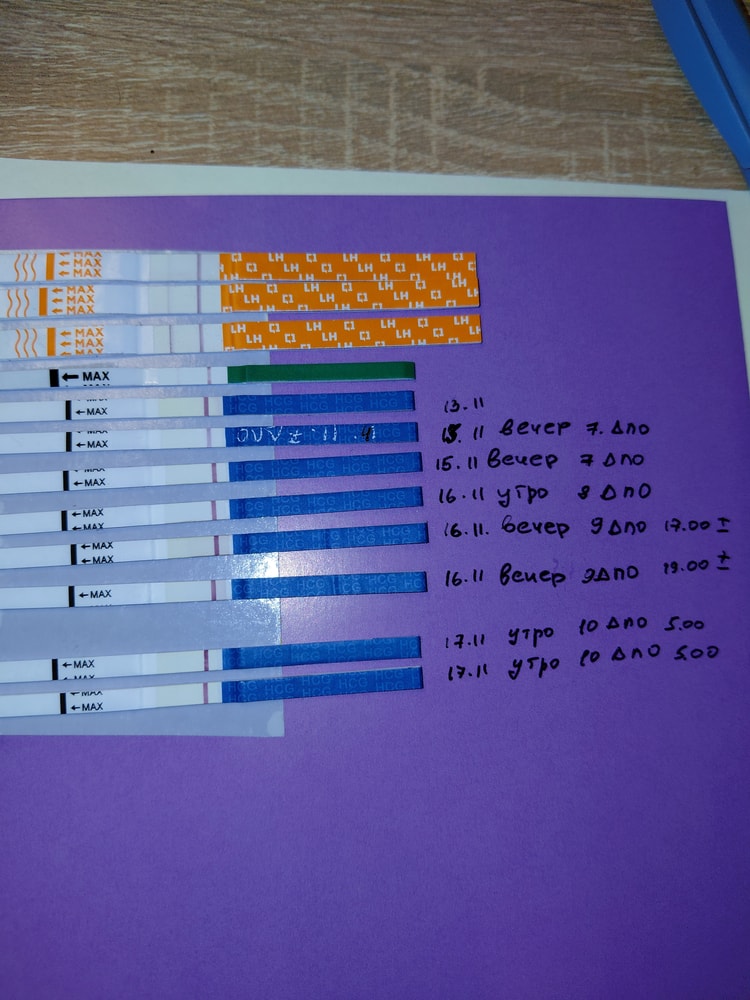 LH C1 LH C1 LH C1 LH
← MAX
← MAX
← MAX
LH C1 LH C1 LH C1 LH
← MAX
← MAX
← MAX
LH C1 LH C1 LH C1 LH
← MAX
← MAX
← MAX
← MAX
← MAX HCG HCG HCG HCG 13.11
← MAX 15.11 вечер 7. ДПО
← MAX HCG HCG HCG HCG 15.11 вечер 7 ДПО
← MAX HCG HCG HCG HCG 16.11 утро 8 ДПО
← MAX HCG HCG HCG HCG 16.11. вечер 9 ДПО 17.00 ±
← MAX HCG HCG HCG HCG 16.11 вечер 9ДПО 19.00 ±
← MAX HCG HCG HCG HCG 17.11 утро 10 ДПО 5.00
← MAX HCG HCG HCG HCG 17.11 утро 10 ДПО 5.00